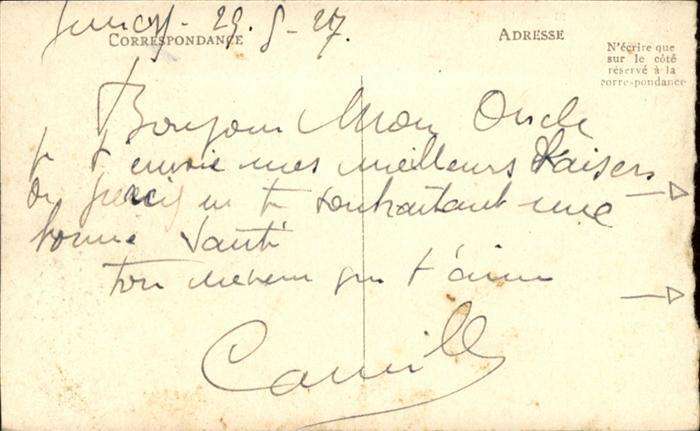 29-8-27.
CORRESPONDANCE
ADRESSE
N'écrire que
sur le côté
réservé à la
correspondance
Bonjour Mon Oncle
je t'envoie mes meilleurs Baisers
en te souhaitant une
bonne Santé
ton neveu qui t'aime
Camille